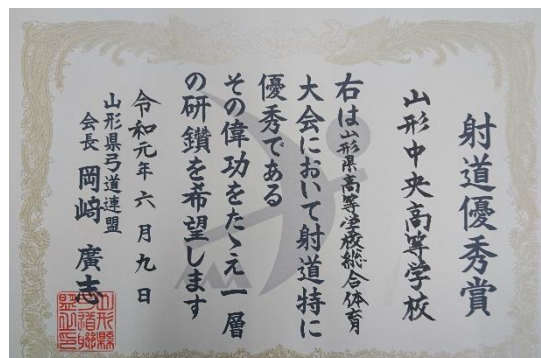 射道優秀賞
山形中央高等学校
右は山形県高等学校総合体育
大会において射道特に
優秀である
その偉功をたゝえ一層
の研鑽を希望します
令和元年六月九日
山形県弓道連盟
会長 岡﨑廣志